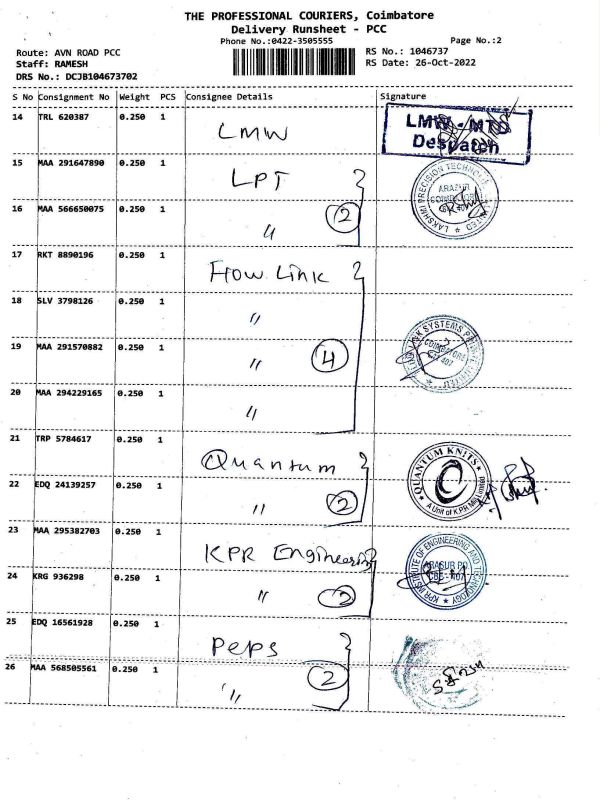 THE PROFESSIONAL COURIERS, Coimbatore
Delivery Runsheet - PCC
Phone No.:0422-3505555 Page No.:2
Route: AVN ROAD PCC RS No.: 1046737
Staff: RAMESH RS Date: 26-Oct-2022
DRS No.: DCJB104673702
S No Consignment No Weight PCS Consignee Details Signature
14 TRL 620387 0.250 1 LMW LMW - MTD
Despatch
15 MAA 291647890 0.250 1 LPT LAKSHMI PRECISION TECHNOLOGIES LIMITED
ARASUR
16 MAA 566650075 0.250 1 " 2
17 RKT 8890196 0.250 1 Flow Link
18 SLV 3798126 0.250 1 "
19 MAA 291570882 0.250 1 " 4 LINK SYSTEMS
COIMBATORE
407
20 MAA 294229165 0.250 1 "
21 TRP 5784617 0.250 1 Quantum QUANTUM KNITS
A Unit of K.P.R Mill Limited
22 EDQ 24139257 0.250 1 " 2
23 MAA 295382703 0.250 1 KPR Engineering KPR INSTITUTE OF ENGINEERING AND TECHNOLOGY
ARASUR PO
CBE - 407
24 KRG 936298 0.250 1 " 2
25 EDQ 16561928 0.250 1 Peps
26 MAA 568505561 0.250 1 " 2